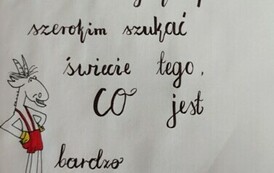 szerokim szukać
świecie tego,
CO jest
bardzo